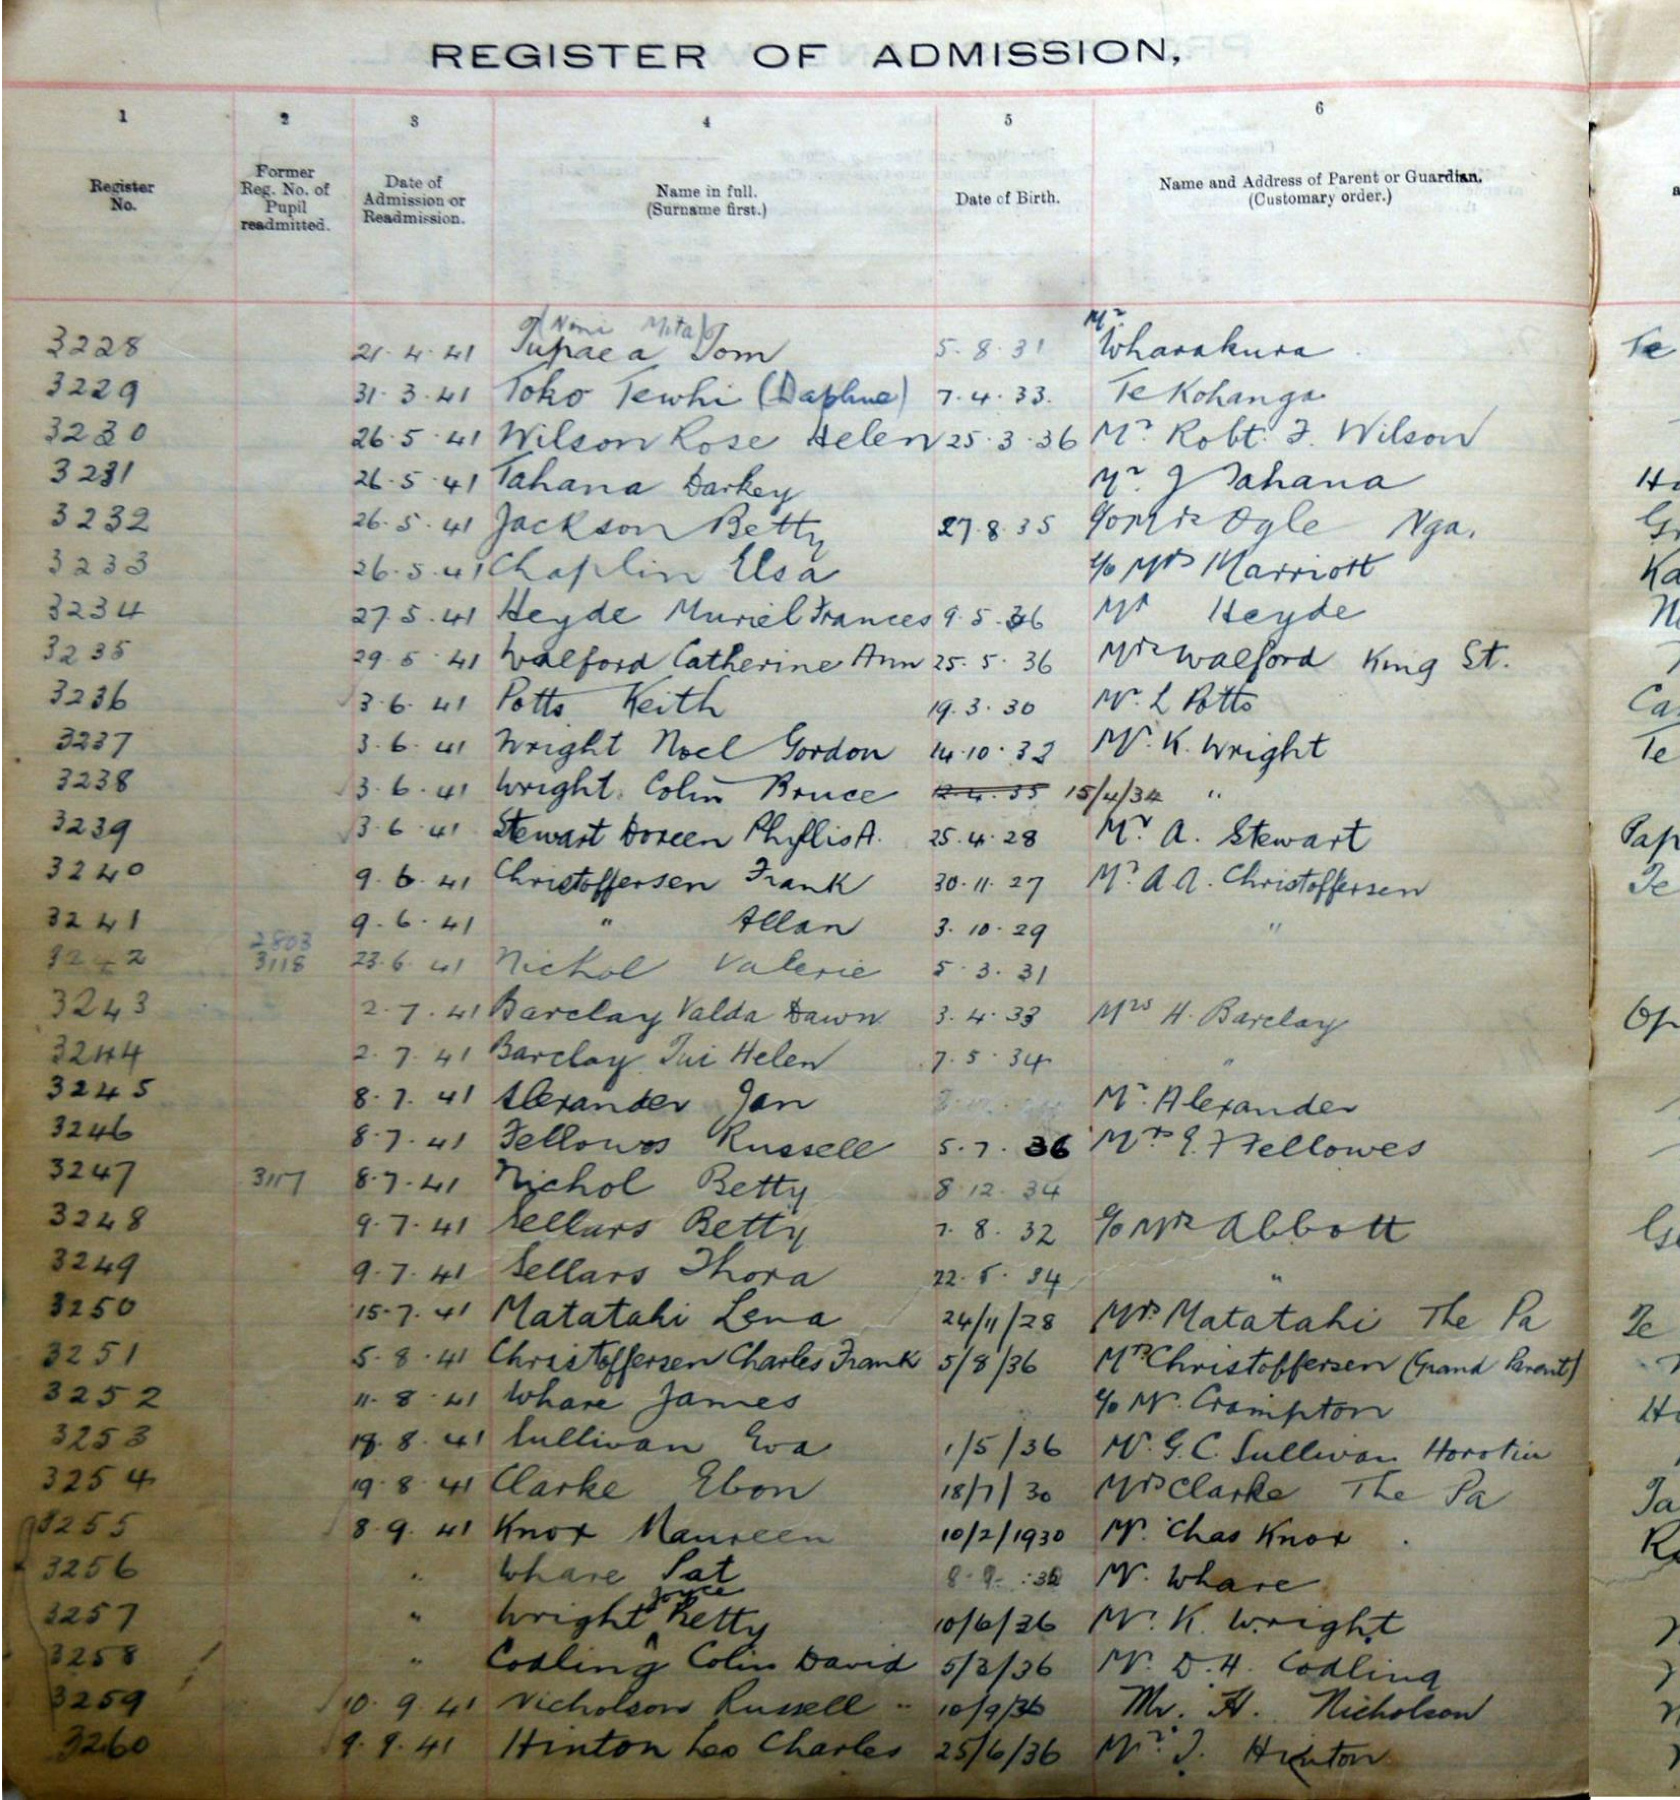 REGISTER OF ADMISSION,
1 2 3 4 5 6
Register No. Former Reg. No. of Pupil readmitted. Date of Admission or Readmission. Name in full. (Surname first.) Date of Birth. Name and Address of Parent or Guardian. (Customary order.)
3228 21.4.41 Tupaea Tom 5.8.31 Mr Wharakura Te
3229 31.3.41 Toko Tewhi (Daphne) 7.4.33. Te Kohanga
3230 26.5.41 Wilson Rose Helen 25.3.36 Mr Robt. J. Wilson
3231 26.5.41 Tahana Darkey Mr J Tahana
3232 26.5.41 Jackson Betty 27.8.35 c/o Mrs Ogle Nga.
3233 26.5.41 Chaplin Elsa c/o Mrs Marriott
3234 27.5.41 Heyde Muriel Frances 9.5.36 Mr Heyde
3235 29.5.41 Walford Catherine Ann 25.5.36 Mrs Walford King St.
3236 3.6.41 Potts Keith 19.3.30 Mr. L Potts
3237 3.6.41 Wright Noel Gordon 14.10.32 Mr. K. Wright
3238 3.6.41 Wright Colin Bruce 12.4.35 15/4/34 "
3239 3.6.41 Stewart Doreen Phyllis A. 25.4.28 Mr. A. Stewart
3240 9.6.41 Christoffersen Frank 30.11.27 Mr. A A. Christoffersen
3241 9.6.41 " Allan 3.10.29 "
3242 2803 3118 23.6.41 Nichol Valerie 5.3.31
3243 2.7.41 Barclay Valda Dawn 3.4.33 Mrs H. Barclay
3244 2.7.41 Barclay Tui Helen 7.5.34 "
3245 8.7.41 Alexander Jan Mr. Alexander
3246 8.7.41 Fellowes Russell 5.7.36 Mrs E. F Fellowes
3247 3117 8.7.41 Nichol Betty 8.12.34
3248 9.7.41 Sellars Betty 7.8.32 c/o Mrs Abbott
3249 9.7.41 Sellars Thora 22.5.34 "
3250 15.7.41 Matatahi Lena 24/11/28 Mrs Matatahi The Pa
3251 5.8.41 Christoffersen Charles Frank 5/8/36 Mrs Christoffersen (Grand Parent)
3252 11.8.41 Whare James c/o Mr. Crampton
3253 18.8.41 Sullivan Eva 1/5/36 Mr. G. C. Sullivan Horotiu
3254 19.8.41 Clarke Ebon 18/7/30 Mrs Clarke The Pa
3255 8.9.41 Knox Maureen 10/2/1930 Mr. Chas Knox
3256 " Whare Pat Mr. Whare
3257 " Wright Joyce Betty 10/6/36 Mr. K. Wright
3258 " Codling Colin David 5/3/36 Mr. D. H. Codling
3259 10.9.41 Nicholson Russell 10/9/36 Mr. H. Nicholson
3260 9.9.41 Hinton Leo Charles 25/6/36 Mr. J. Hinton